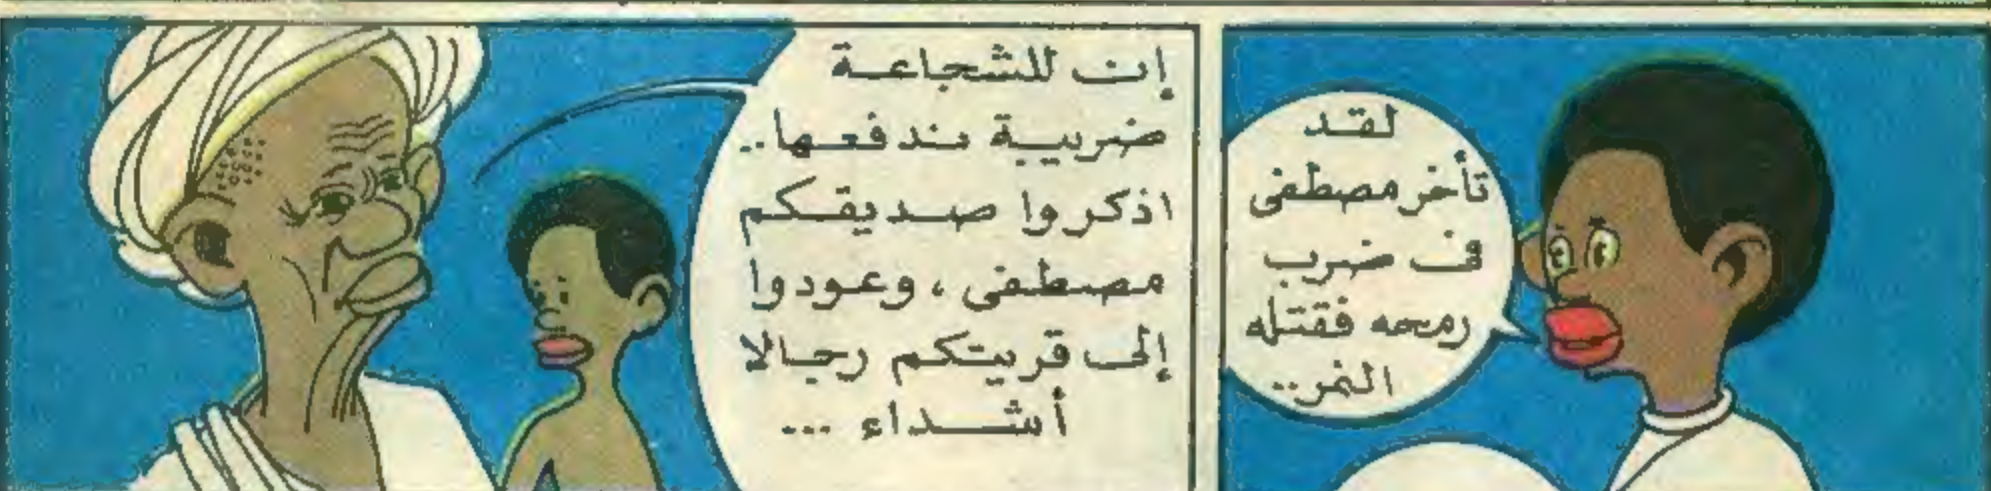 لقد
تأخر مصطفى
في ضرب
رمحه فقتله
النمر..
إن للشجاعة
ضريبة ندفعها..
اذكروا صديقكم
مصطفى، وعودوا
إلى قريتكم رجالا
أشداء ...